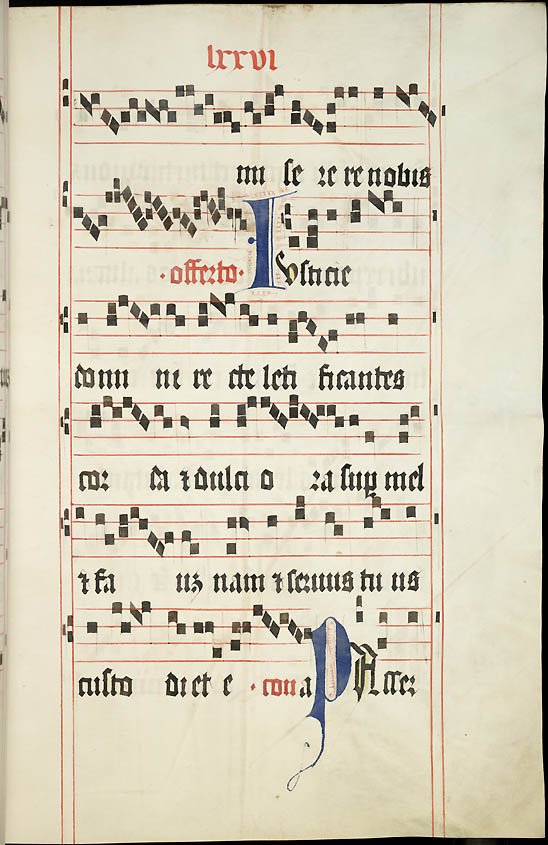 lxxvi
mi se re re nobis
· offerto · Iusticie
domi ni re cte leti ficantes
cor da ⁊ dulci o ra sup mel
⁊ fa uꝫ nam ⁊ seruus tu us
custo di et e · co᷑ıa PAsser